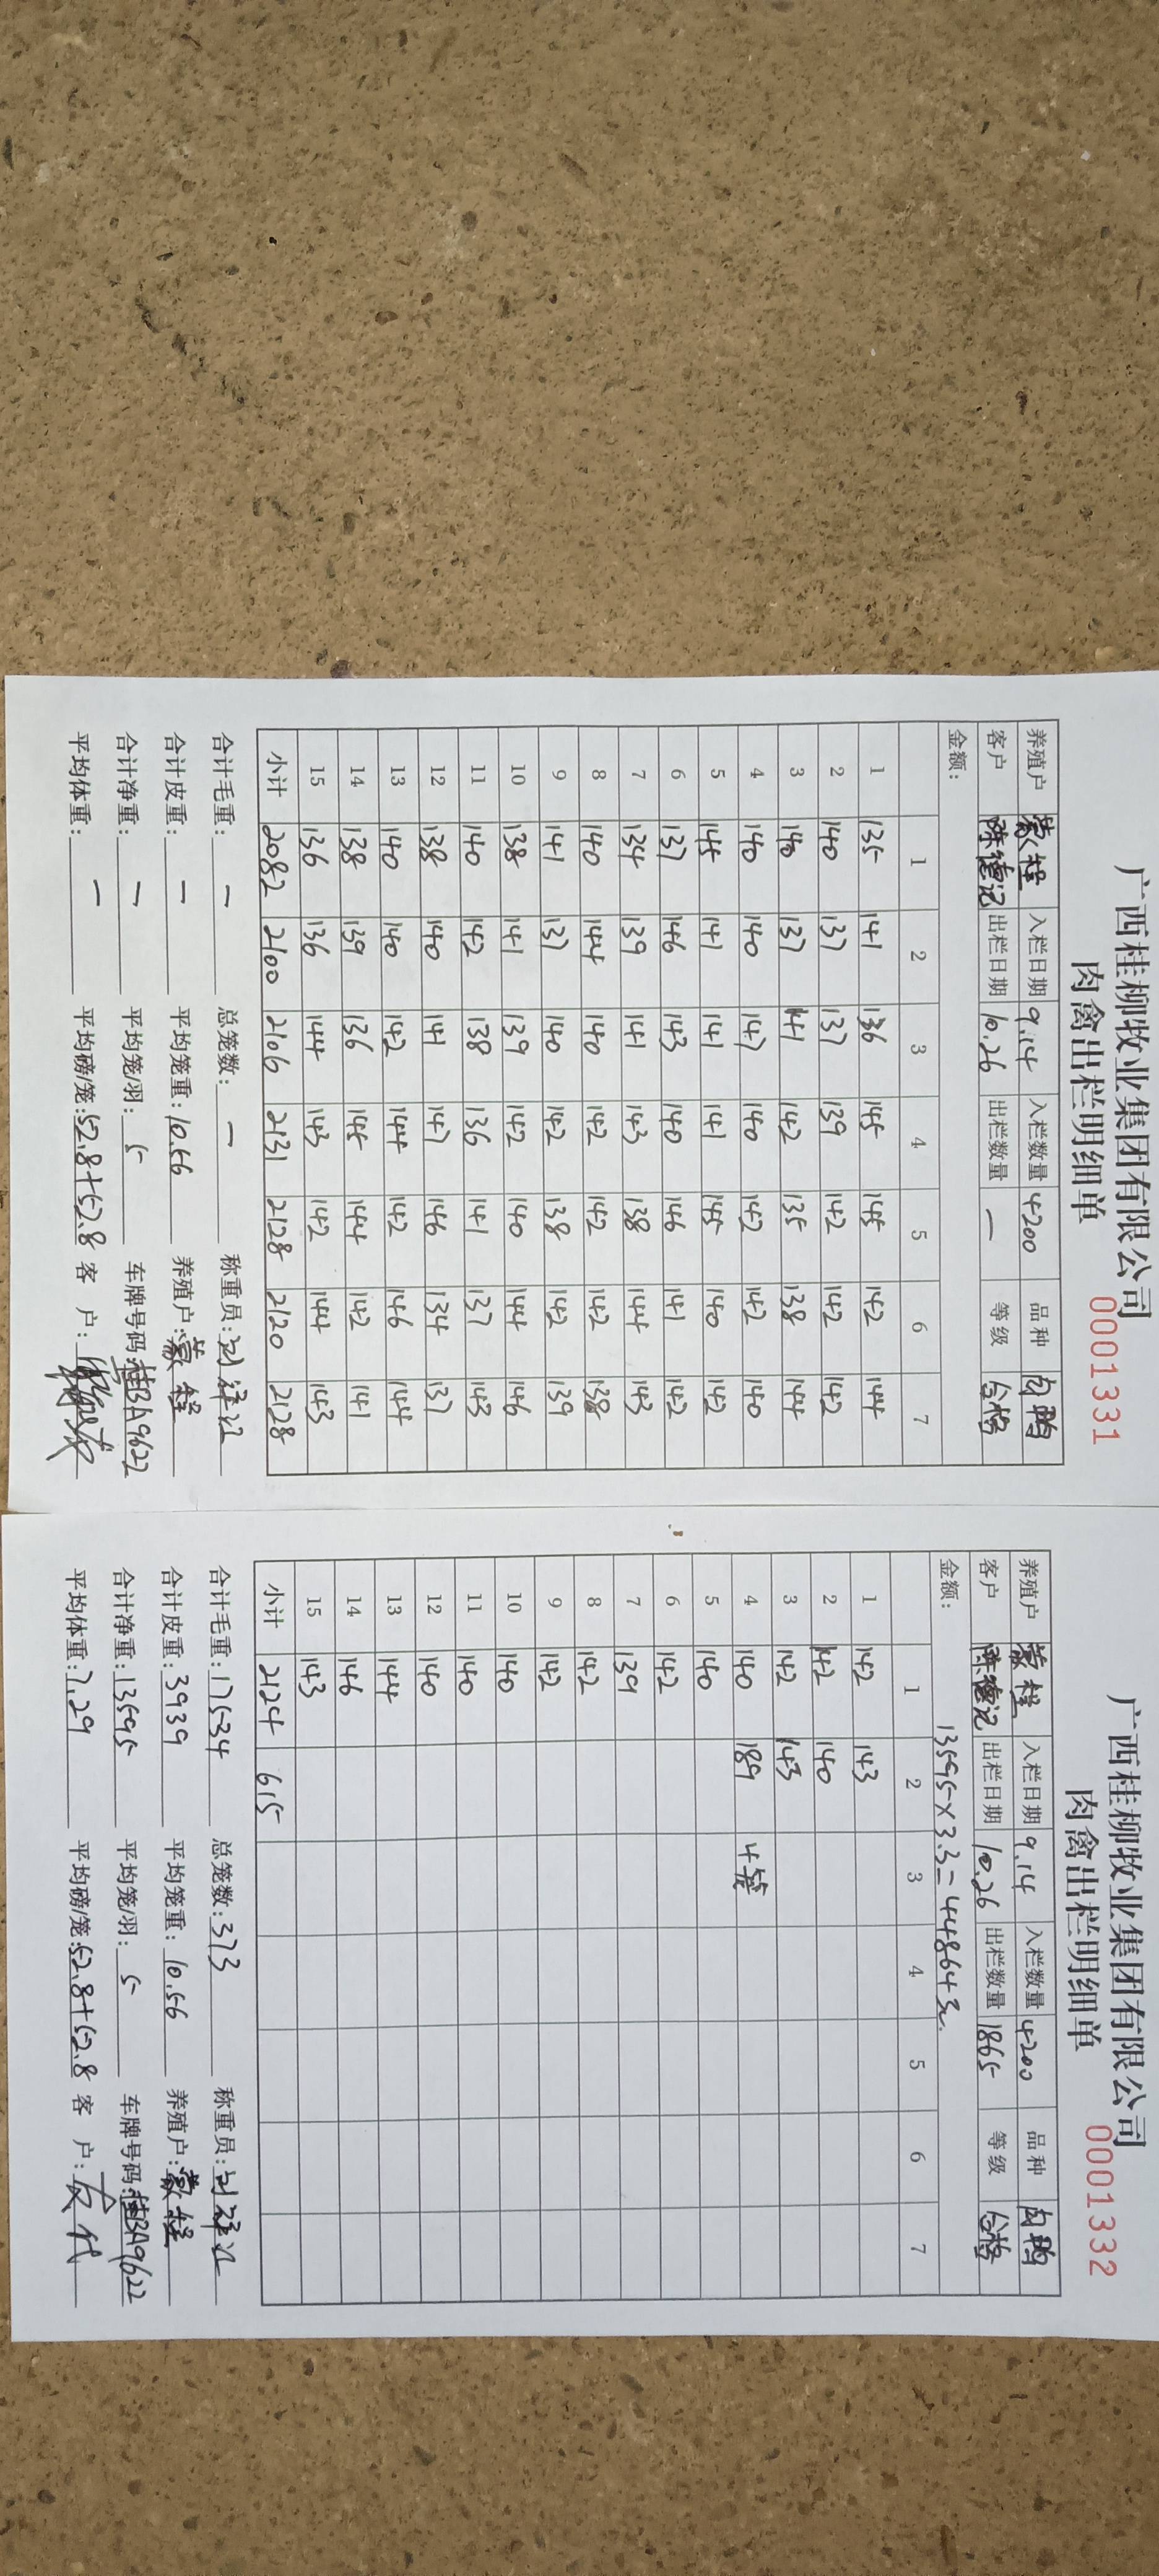 广西桂柳牧业集团有限公司
肉禽出栏明细单 0001331
养殖户 蒙程 入栏日期 9.14 入栏数量 4200 品种 肉鸭
客户 陈德记 出栏日期 10.26 出栏数量 — 等级 合格
金额:
1 2 3 4 5 6 7
1 135 141 136 145 145 142 144
2 140 137 137 139 142 142 142
3 140 137 141 142 135 138 144
4 140 140 147 140 142 142 140
5 145 141 141 141 145 140 142
6 137 146 143 140 146 141 142
7 134 139 141 143 138 144 143
8 140 144 140 142 142 142 138
9 141 137 140 142 138 142 139
10 138 141 139 142 140 144 146
11 140 142 138 136 141 137 143
12 138 140 141 147 146 134 137
13 140 140 142 144 142 146 144
14 138 139 136 145 144 142 141
15 136 136 144 143 142 144 143
小计 2082 2100 2106 2131 2128 2120 2128
合计毛重: — 总笼数: — 称重员:
合计皮重: — 平均笼重: 10.56 养殖户: 蒙程
合计净重: — 平均笼/羽: 5 车牌号码: 桂BA9622
平均体重: — 平均磅/笼: 52.8+52.8 客 户:
广西桂柳牧业集团有限公司
肉禽出栏明细单 0001332
养殖户 蒙程 入栏日期 9.14 入栏数量 4200 品种 肉鸭
客户 陈德记 出栏日期 10.26 出栏数量 1865 等级 合格
金额: 13595×3.3=44864元.
1 2 3 4 5 6 7
1 142 143
2 142 140
3 142 143
4 140 189 4笼
5 140
6 142
7 139
8 142
9 142
10 140
11 140
12 140
13 144
14 146
15 143
小计 2124 615
合计毛重: 17534 总笼数: 373 称重员:
合计皮重: 3939 平均笼重: 10.56 养殖户: 蒙程
合计净重: 13595 平均笼/羽: 5 车牌号码: 桂BA9622
平均体重: 7.29 平均磅/笼: 52.8+52.8 客 户: